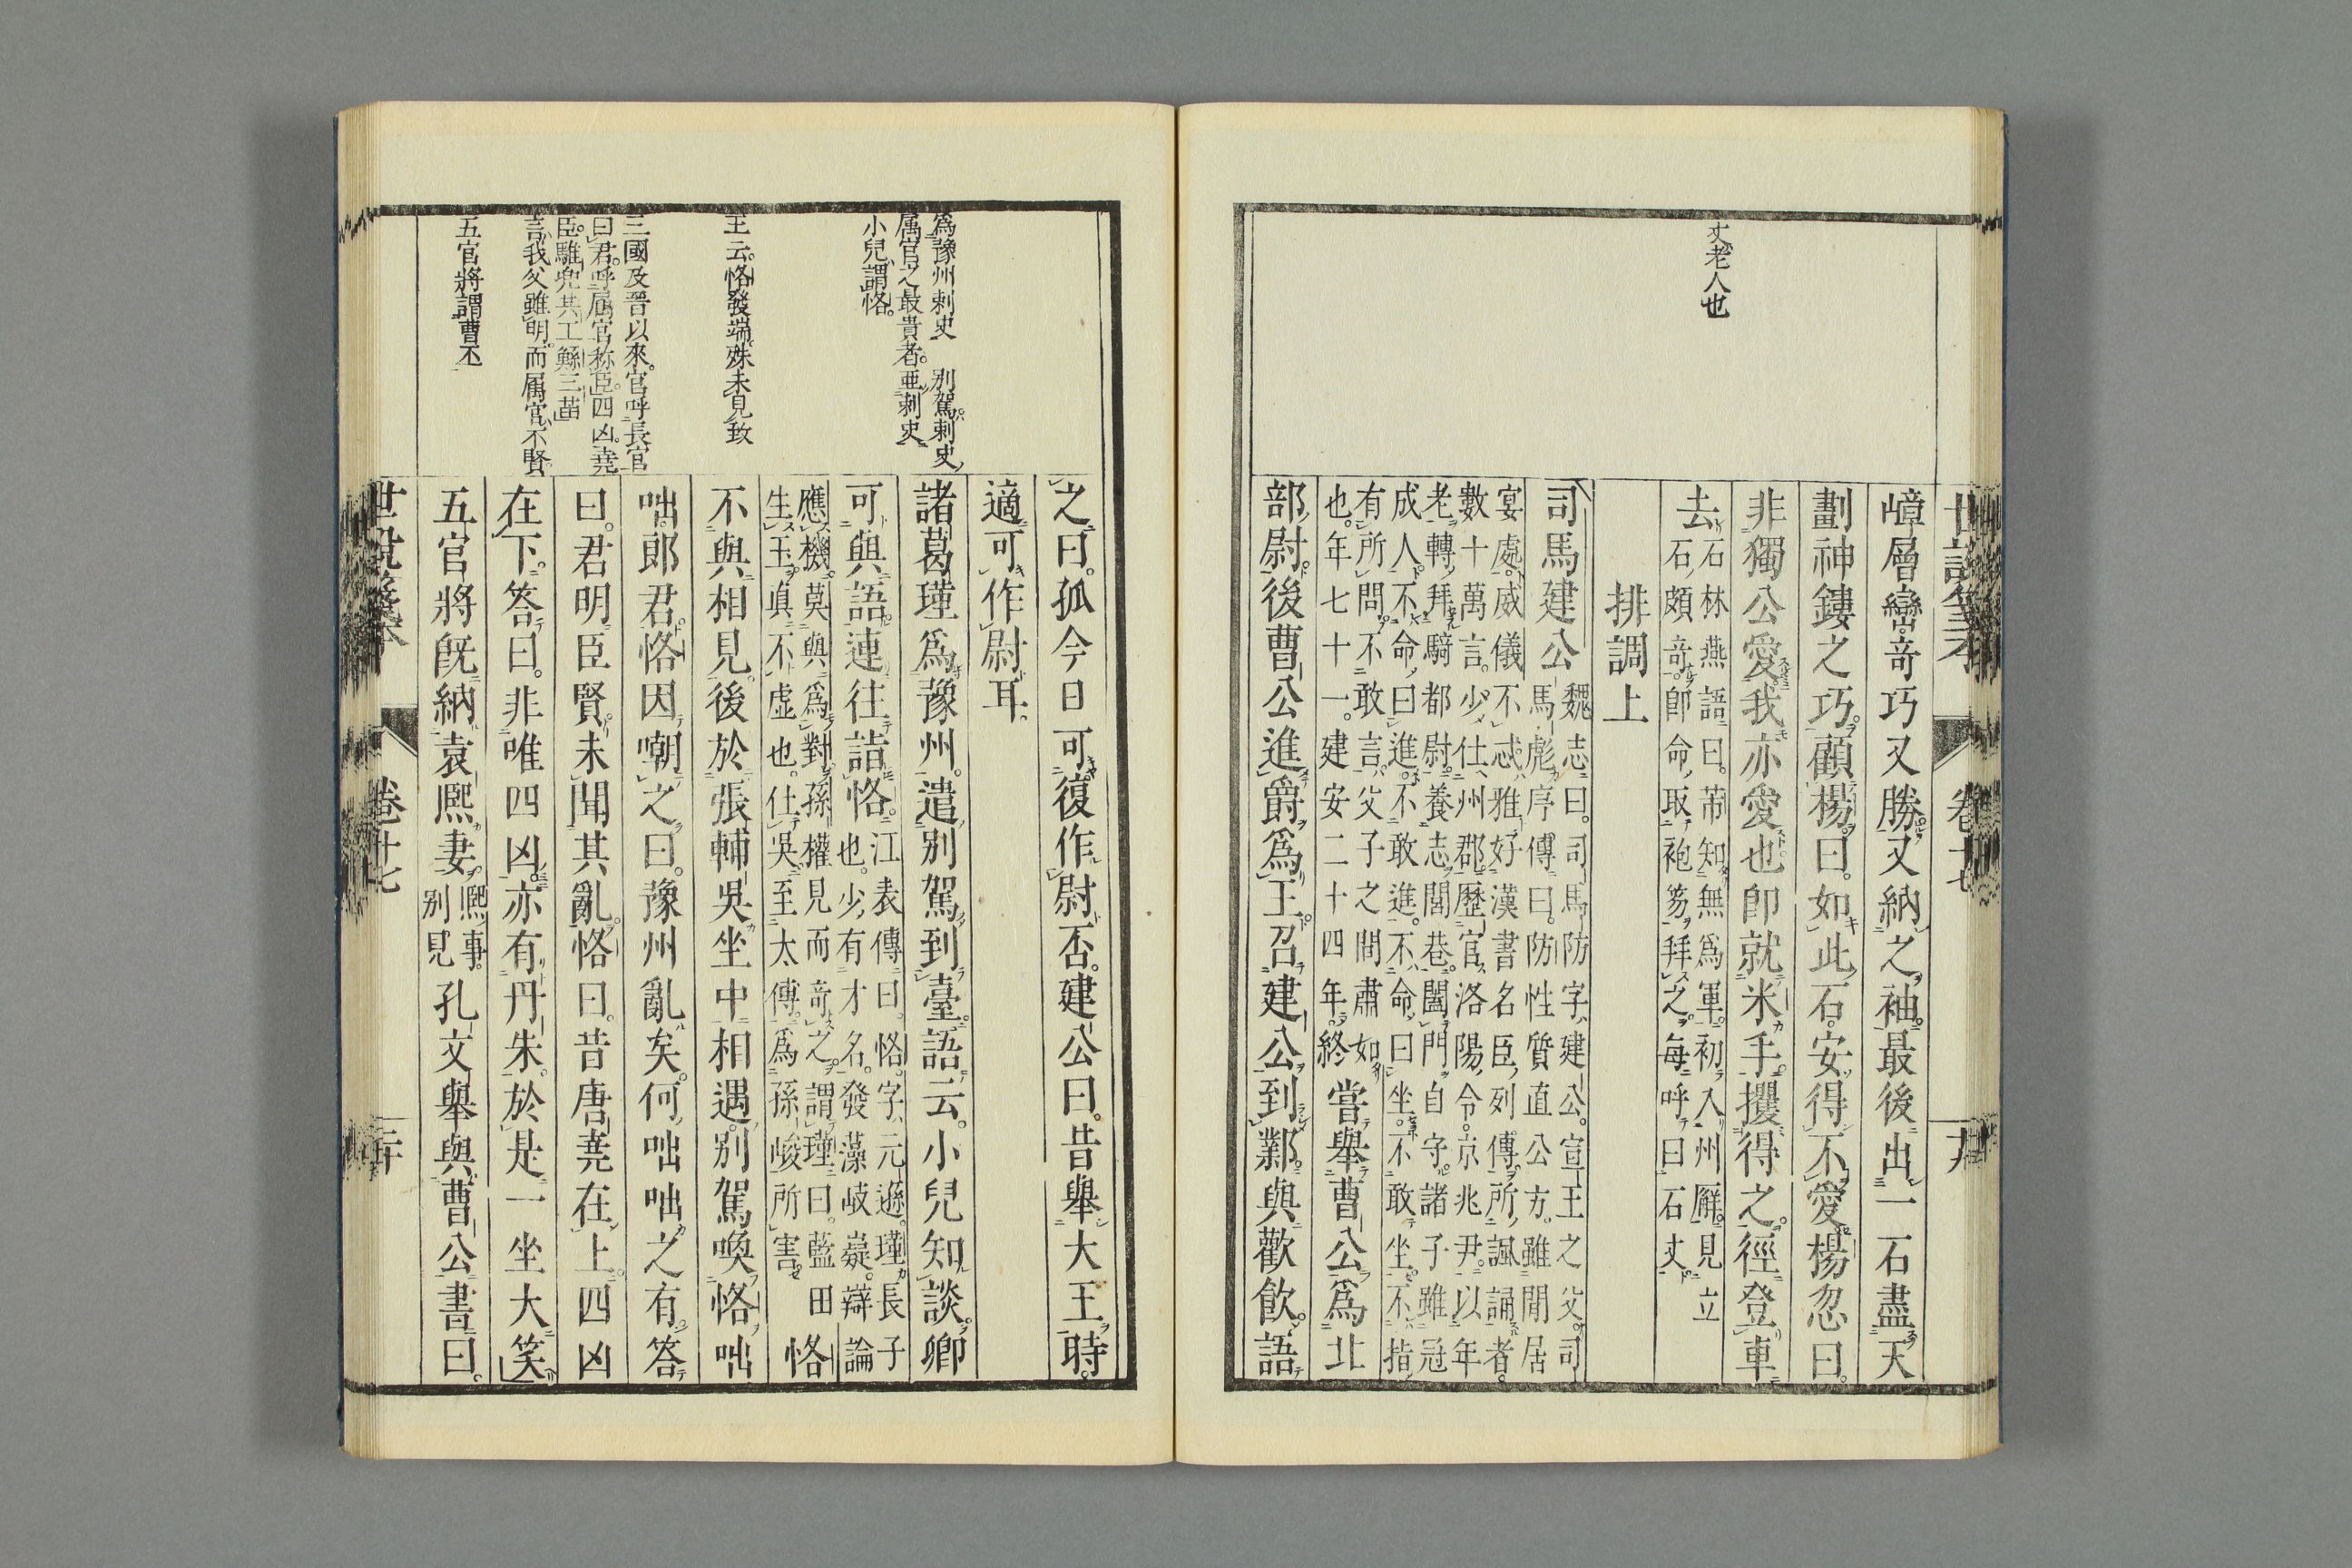 世説箋本 卷十七 十九
丈老人也
嶂層巒竒巧又勝又納之袖最後出一石盡天
劃神鏤之巧。顧楊曰。如此石安得不愛楊忽曰。
非獨公愛我亦愛也卽就米手攫得之徑登車
去石林燕語曰。芾知無爲軍初入州廨見立
石頗竒。卽命取袍笏拜之每呼曰石丈
排調上
司馬建公魏志曰。司馬防字建公。宣王之父。司
馬彪序傳曰。防性質直公方。雖閒居
宴處。威儀不忒雅好漢書名臣列傳所諷誦者。
數十萬言。少仕州郡歷官洛陽令。京兆尹。以年
老轉拜騎都尉。養志閭巷。闔門自守。諸子雖冠
成人不命曰進。不敢進。不命曰坐。不敢坐。不指
有所問。不敢言。父子之間肅如
也。年七十一。建安二十四年。終當舉曹公爲北
部尉後曹公進爵爲王召建公到鄴與歡飮。語
爲豫州刺史 別駕刺史
属官之最貴者。亜刺史
小兒謂恪。
王云。恪發端殊未見致
三國及晉以來。官呼長官
曰君。呼属官称臣。四凶。堯
臣。驩兜共工鯀三苗
言我父雖明。而属官不賢
五官將謂曹丕
之曰。孤今日可復作尉否。建公曰。昔舉大王時。
適可作尉耳。
諸葛瑾爲豫州。遣別駕到臺語云。小兒知談卿
可與語。連往詣恪。江表傳曰。恪。字元遜。瑾長子
也。少有才名。發藻岐嶷。辯論
應機莫與爲對。孫權見而竒之。謂瑾曰。藍田
生玉眞不虚也。仕吳至太傅爲孫峻所害恪
不與相見。後於張輔吳坐中相遇。別駕喚恪咄
咄。郎君恪因嘲之曰。豫州亂矣。何咄咄之有答
曰。君明臣賢。未聞其亂。恪曰。昔唐堯在上。四凶
在下。答曰。非唯四凶。亦有丹朱。於是一坐大笑
五官將旣納袁熙妻。熙事。
別見孔文舉與曹公書曰。
世説箋本 卷十七 二十